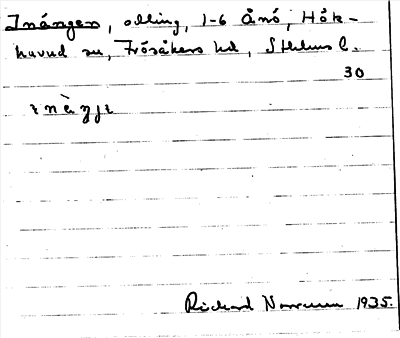 Inängen, odling, 1-6 Ånö, Håk-
huvud sn, Frösåkers hd, Sthlms l.
30
Richard Norrman 1935.